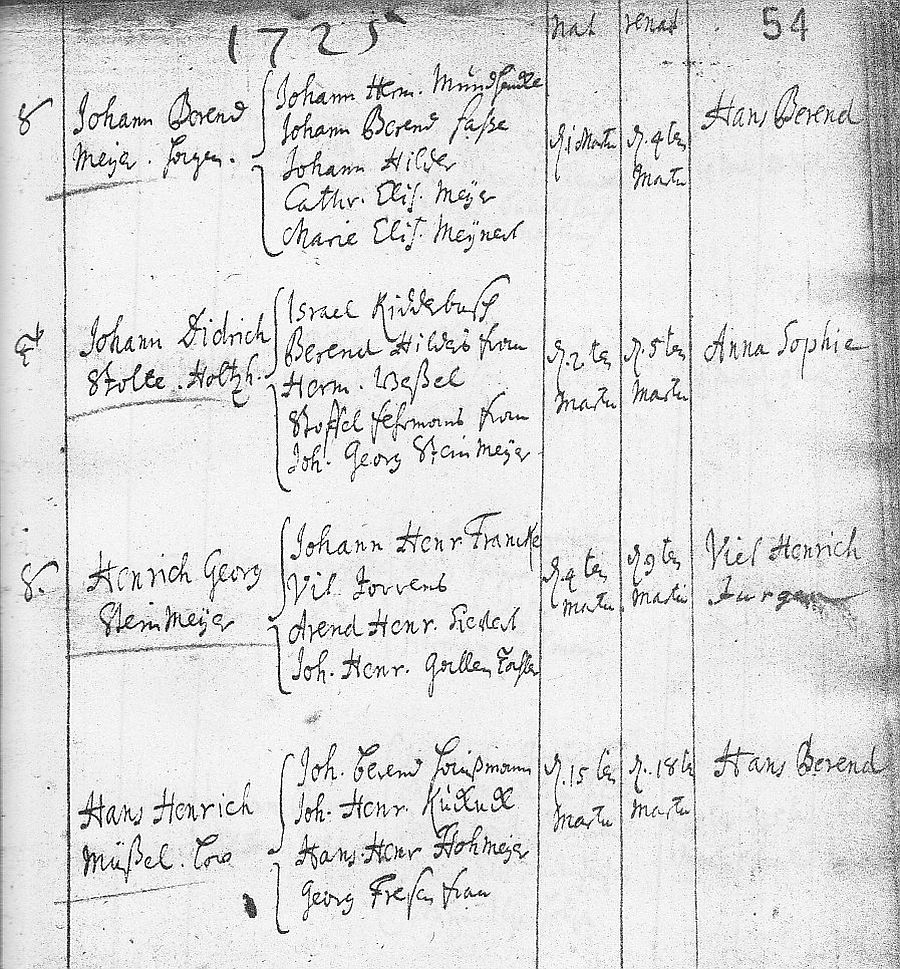 1725 nat renat 54
Johann Berend
Meÿer.
Johann Herm.
Johann Berend faße
Johann Hilder
Cathr. Elis. Meÿer
Marie Elis. Meÿners
d. 1 Martii
d. 4ten
Martii
Hans Berend
Johann Didrich
Stolte. Holtzh.
Israel Kiddebusch
Berend Hilders frau
Herm. Weßel
Stoffel fehrmans frau
Joh. Georg SteinMeÿer
d. 2ten
Martii
d. 5ten
Martii
Anna Sophie
Henrich Georg
SteinMeÿer
Johann Henr Francke
Vil. Jorrens
Arend Henr.
Joh. Henr.
d. 4ten
Martii
d. 9ten
Martii
Viel Henrich
Jurgen
Hans Henrich
Müßel.
Joh. Berend
Joh. Henr. Kuckuck
Hans Henr Hohmeÿer
Georg Fresen frau
d. 15ten
Martii
d. 18ten
Martii
Hans Berend